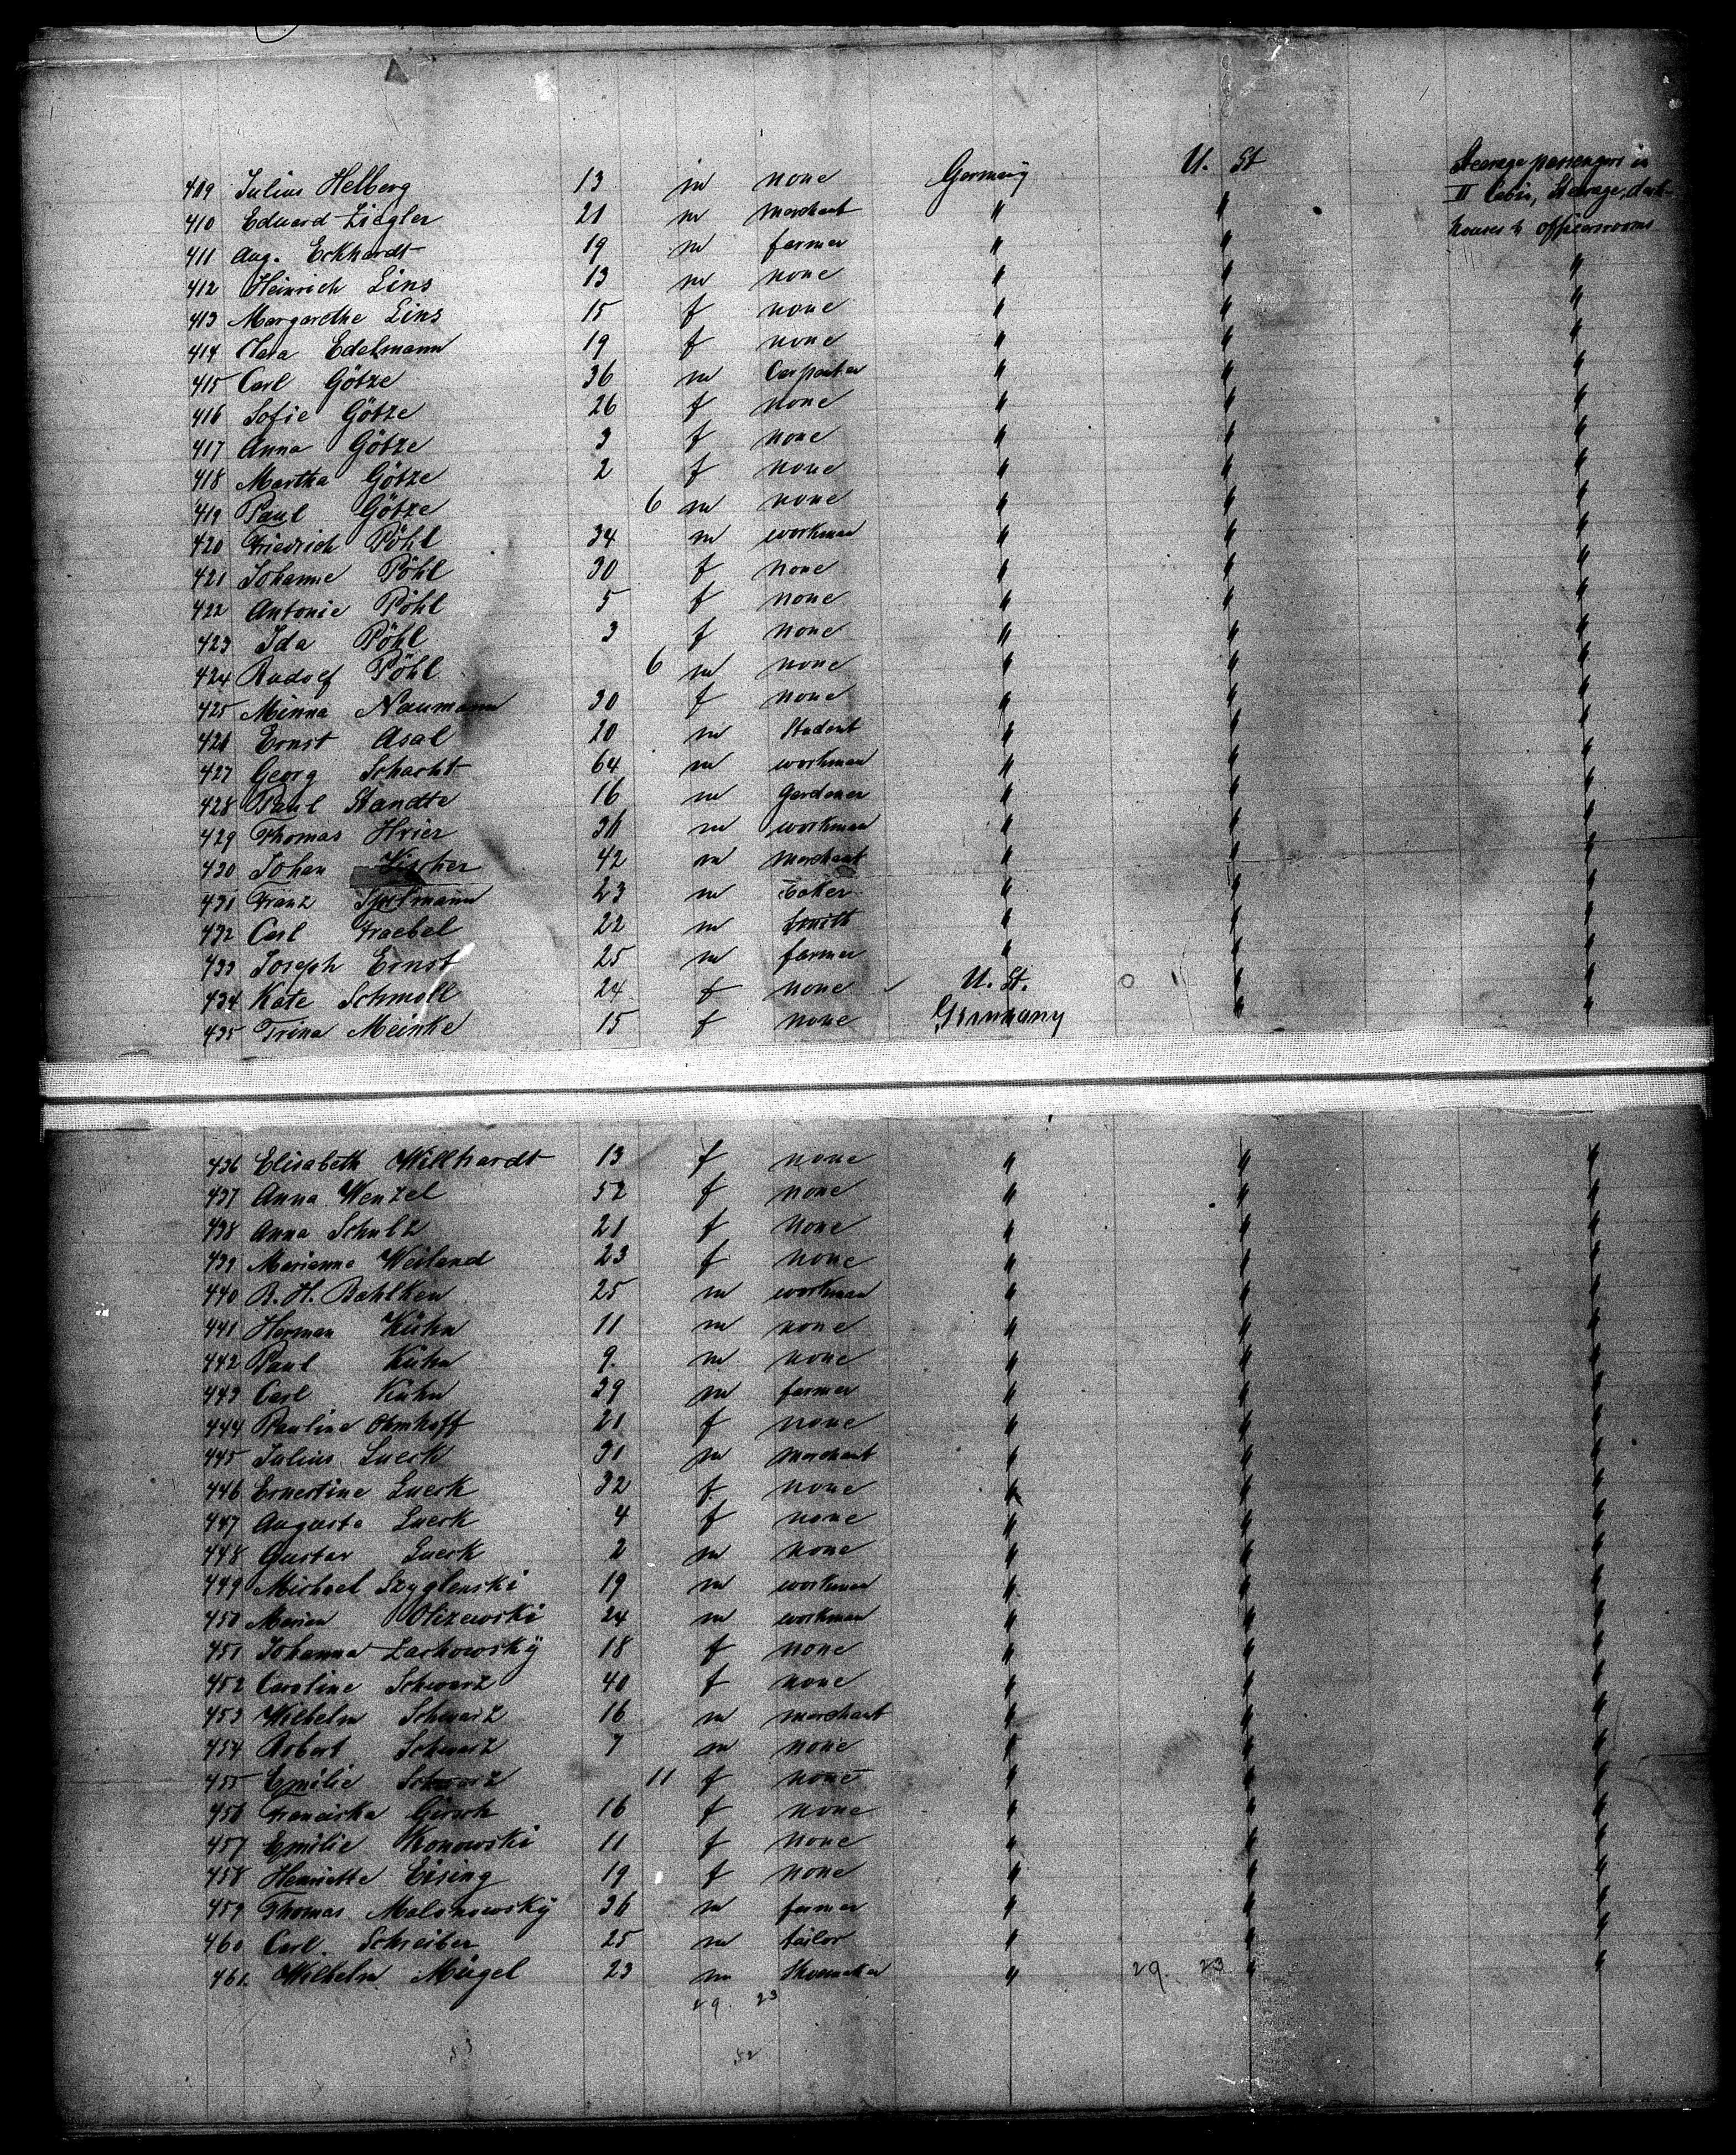 409 Julius Helberg 13 m none Germany U. St Steerage passengers in
410 Eduard Ziegler 21 m merchant " " II Cabin, Steerage, deck-
411 Aug. Eckhardt 19 m farmer " " houses & officersrooms
412 Heinrich Lins 13 m none " " "
413 Margarethe Lins 15 f none " " "
414 Clara Edelmann 19 f none " " "
415 Carl Götze 36 m Carpenter " " "
416 Sofie Götze 26 f none " " "
417 Anna Götze 3 f none " " "
418 Martha Götze 2 f none " " "
419 Paul Götze 6 m none " " "
420 Friedrich Pöhl 34 m workman " " "
421 Johanne Pöhl 30 f none " " "
422 Antonie Pöhl 5 f none " " "
423 Ida Pöhl 3 f none " " "
424 Rudolf Pöhl 6 m none " " "
425 Minna Naumann 30 f none " " "
426 Ernst Asal 20 m Student " " "
427 Georg Schacht 64 m workman " " "
428 Paul Standte 16 m Gardener " " "
429 Thomas Hrier 36 m workman " " "
430 Johan 42 m merchant " " "
431 Franz Spilmann 23 m baker " " "
432 Carl Fraebel 22 m smith " " "
433 Joseph Ernst 25 m farmer " " "
434 Kate Schmoll 24 f none U. St. 0 1 " "
435 Trina Meinke 15 f none Germany " "
436 Elisabeth Willhardt 13 f none " " "
437 Anna Wenzel 52 f none " " "
438 Anna Schulz 21 f none " " "
439 Marianne Weiland 23 f none " " "
440 B. H. Bahlken 25 m workman " " "
441 Herman Kühn 11 m none " " "
442 Paul Kühn 9. m none " " "
443 Carl Kühn 39 m farmer " " "
444 Pauline Ohmhoff 21 f none " " "
445 Julius Lueck 31 m merchant " " "
446 Ernestine Lueck 32 f none " " "
447 Auguste Lueck 4 f none " " "
448 Gustav Lueck 2 m none " " "
449 Michael Szyglenski 19 m workman " " "
450 Marian Olszewski 24 m workman " " "
451 Johanna Lachowsky 18 f none " " "
452 Caroline Schwarz 40 f none " " "
453 Wilhelm Schwarz 16 m merchant " " "
454 Robert Schwarz 7 m none " " "
455 Emilie Schwarz 11 f none " " "
456 Franciska Girsch 16 f none " " "
457 Emilie Konowski 11 f none " " "
458 Henriette Eising 19 f none " " "
459 Thomas Malonowsky 36 m farmer " " "
460 Carl Schreiber 25 m tailor " " "
461 Wilhelm Mügel 23 m Shoemaker " 29. 23 " "
29. 23
53 52